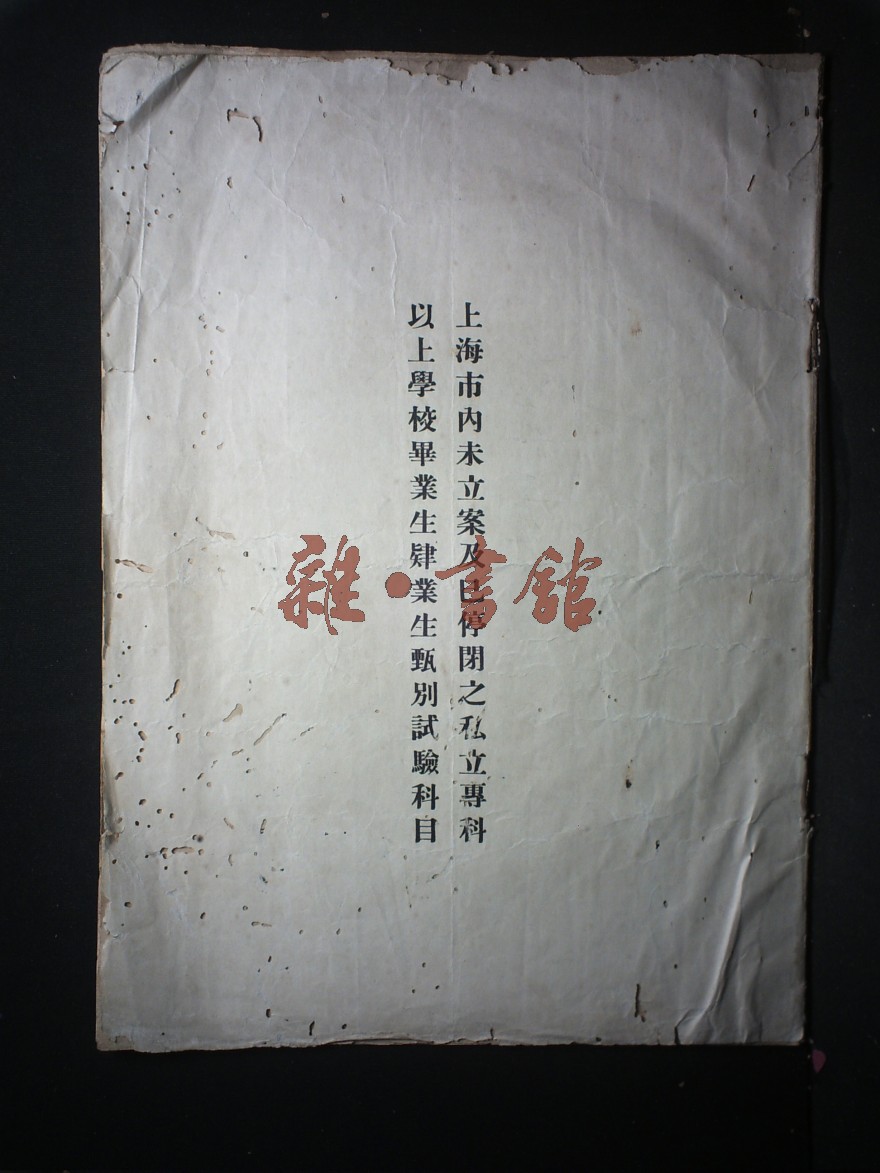 上海市內未立案及已停閉之私立專科
以上學校畢業生肄業生甄別試驗科目
雜·書館